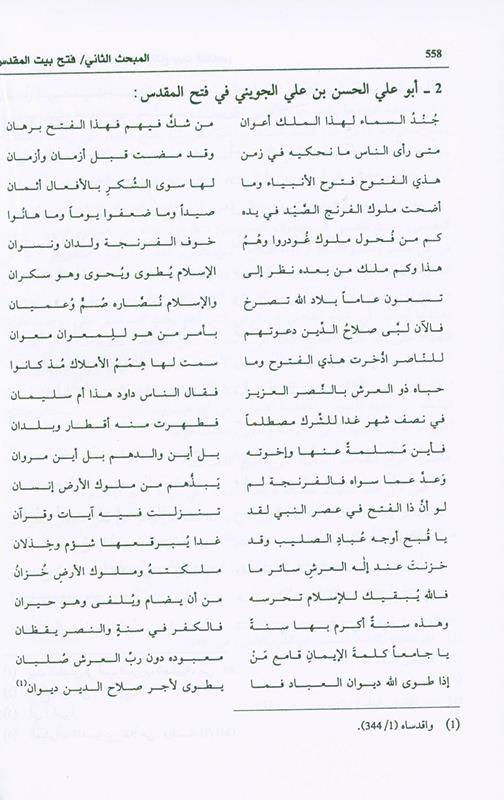 558 المبحث الثاني/ فتح بيت المقدس
2 ـ أبو علي الحسن بن علي الجويني في فتح المقدس:
جُنْدُ السماء لهذا الملك أعوان من شكَّ فيهم فهذا الفتح برهان
متى رأى الناس ما نحكيه في زمن وقد مضت قبل أزمان وأزمان
هذي الفتوح فتوح الأنبياء وما لها سوى الشُكرِ بالأفعال أثمان
أضحت ملوك الفرنج الصِّيْد في يده صيداً وما ضعفوا يوماً وما هانُوا
كم من فُحول ملوك غُودروا وهُمُ خوف الفرنجة ولدان ونسوان
هذا وكم ملك من بعده نظر إلى الإسلام يُطوى ويُحوى وهو سكران
تسعون عاماً بلاد الله تصرخ والإسلام نُصَّاره صُمٌّ وعُميان
فالآن لبَّى صلاحُ الدِّين دعوتهم بأمر من هو للمعوان معوان
للناصر ادُّخرت هذي الفتوح وما سمت لها هِمَمُ الأملاك مُذ كانوا
حباه ذو العرش بالنَّصر العزيز فقال الناس داود هذا أم سليمان
في نصف شهر غدا للشِّرك مصطلماً فطهرت منه أقطار وبلدان
فأين مَسلمةٌ عنها وإخوته بل أين والدهم بل أين مروان
وَعدِّ عما سواه فالفرنجة لم يَبذُّهم من ملوك الأرض إنسان
لو أنَّ ذا الفتح في عصر النبي لقد تنزلت فيه آيات وقرآن
يا قُبح أوجه عُبادِ الصليب وقد غدا يُبرقعها شؤم وخِذلان
خزنتَ عند إله العرشِ سائر ما ملكته وملوك الأرضِ خُزانُ
فالله يُبقيك للإسلام تحرسه من أن يضام ويُلفى وهو حيران
وهذه سنةٌ أكرم بها سنةً فالكفر في سنةٍ والنصر يقظان
يا جامعاً كلمةَ الإيمانِ قامع مَنْ معبوده دون ربِّ العرش صُلبان
إذا طوى الله ديوان العباد فما يطوى لأجر صلاح الدين ديوان(1)
(1) واقدساه (1/ 344).